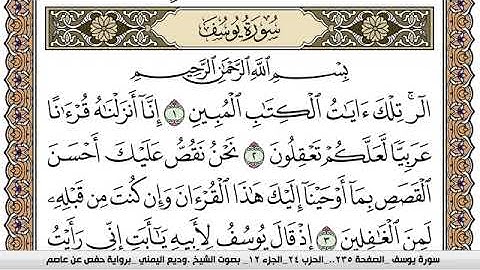 سُورَةُ يُوسُفَ
بِسْمِ ٱللَّهِ ٱلرَّحْمَٰنِ ٱلرَّحِيمِ
الٓرۚ تِلْكَ ءَايَٰتُ ٱلْكِتَٰبِ ٱلْمُبِينِ ١ إِنَّآ أَنزَلْنَٰهُ قُرْءَٰنًا
عَرَبِيًّا لَّعَلَّكُمْ تَعْقِلُونَ ٢ نَحْنُ نَقُصُّ عَلَيْكَ أَحْسَنَ
ٱلْقَصَصِ بِمَآ أَوْحَيْنَآ إِلَيْكَ هَٰذَا ٱلْقُرْءَانَ وَإِن كُنتَ مِن قَبْلِهِۦ
لَمِنَ ٱلْغَٰفِلِينَ ٣ إِذْ قَالَ يُوسُفُ لِأَبِيهِ يَٰٓأَبَتِ إِنِّي رَأَيْتُ
سورة يوسف _الصفحة ٢٣٥.._ الحزب ٢٤_الجزء ١٢_ بصوت الشيخ .وديع اليمني _برواية حفص عن عاصم